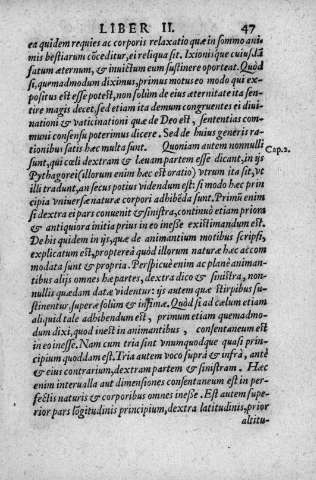 LIBER II. 47
ea quidem requies ac corporis relaxatio quæ in somno ani⸗
mis bestiarum cõceditur, ei reliqua sit. Ixionisque cuiusdã
fatum æternum, & inuictum eum sustinere oporteat. Quòd
si, quemadmodum diximus, primus motus eo modo qui ex⸗
positus est esse potest, non solùm de eius æternitate ita sen⸗
tire magis decet, sed etiam ita demum congruentes ei diui⸗
nationi & vaticinationi quæ de Deo est, sententias com⸗
muni consensu poterimus dicere. Sed de huius generis ra⸗
tionibus satis hæc multa sunt. Quoniam autem nonnulli
sunt, qui cœli dextram & læuam partem esse dicant, in ijs
Cap. 2.
Pythagorei (illorum enim hæc est oratio) vtrum ita sit, vt
illi tradunt, an secus potius videndum est: si modo hæc prin
cipia vniuersæ naturæ corpori adhibẽda sunt. Primũ enim
si dextra ei pars conuenit & sinistra, continuò etiam priora
& antiquiora initia prius in eo inesse existimandum est.
De his quidem in ijs, quæ de animantium motibus scripsi,
explicatum est, proptereà quòd illorum naturæ hæc accom
modata sunt & propria. Perspicuè enim ac planè animan⸗
tibus alijs omnes hæ partes, dextra dico & sinistra, non⸗
nullis quædam datæ videntur: ijs autem quæ stirpibus su⸗
stinentur, superæ solùm & infimæ. Quòd si ad cœlum etiam
aliquid tale adhibendum est, primum etiam quemadmo⸗
dum dixi, quod inest in animantibus, consentaneum est
in eo inesse. Nam cum tria sint vnumquodque quasi prin⸗
cipium quoddam est. Tria autem voco suprà & infrà, antè
& eius contrarium, dextram partem & sinistram. Hæc
enim interualla aut dimensiones consentaneum est in per⸗
fectis naturis & corporibus omnes inesse. Est autem supe⸗
rior pars lõgitudinis principium, dextra latitudinis, prior
altitu-